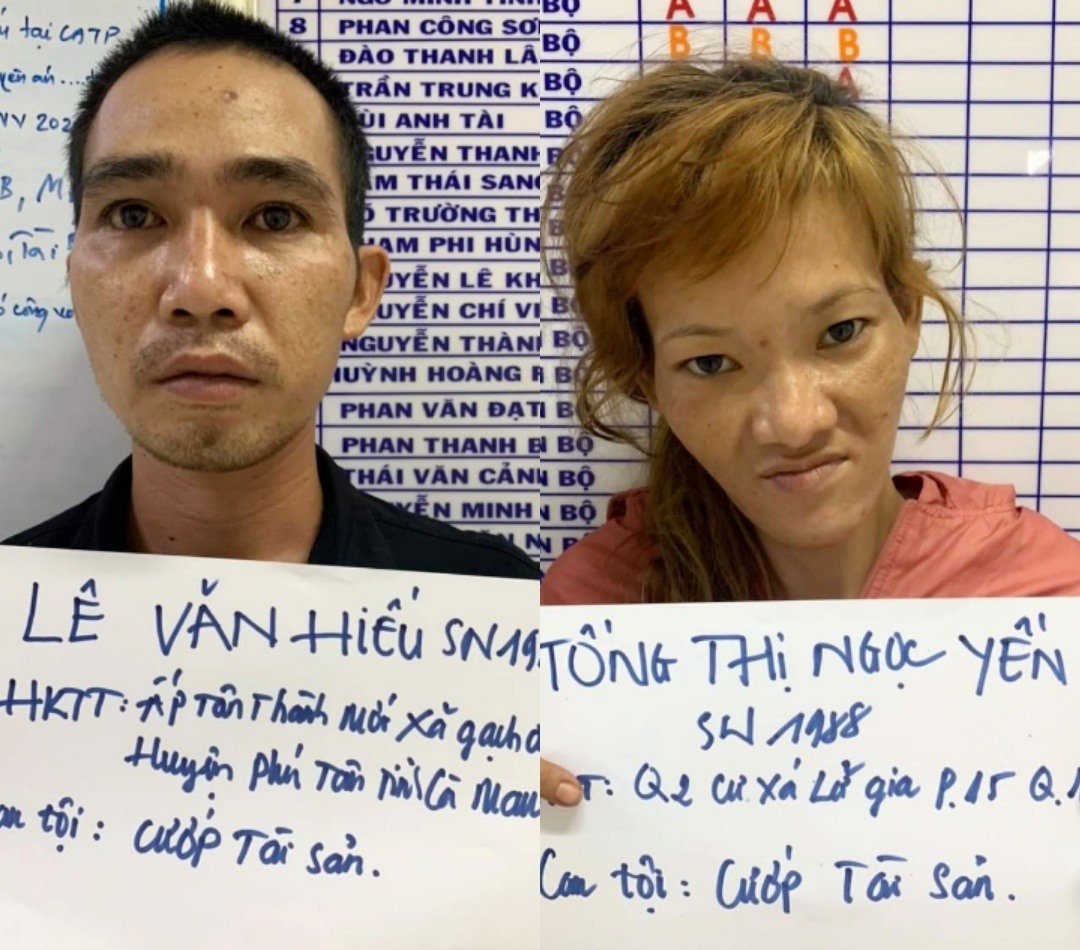 8 PHAN CÔNG SƠ
ĐÀO THANH LÂ
TRẦN TRUNG K
ÙI ANH TÀI
GUYỄN THANH
ÂM THÁI SANG
Õ TRƯỜNG TH
HẠM PHI HÙN
UYỄN LÊ KH
UYỄN CHÍ VI
NGUYỄN THÀN
HUỲNH HOÀNG
PHAN VĂN ĐẠT
PHAN THANH
THÁI VĂN CẢN
YỄN MINH
tại CATP
LÊ VĂN HIẾU SN 19
HKTT: Ấp Tân Thành Mới Xã gạch
Huyện Phú Tân Tỉnh Cà Mau
tội: Cướp Tài Sản.
BỘ A A A
BỘ B B B
BỘ A
BỘ
BỘ
BỘ
BỘ
BỘ
BỘ
BỘ
BỘ
TỐNG THỊ NGỌC YẾN
SN 1988
T: Q2 cư xá Lữ gia P.15 Q.1
Can tội: Cướp Tài Sản.